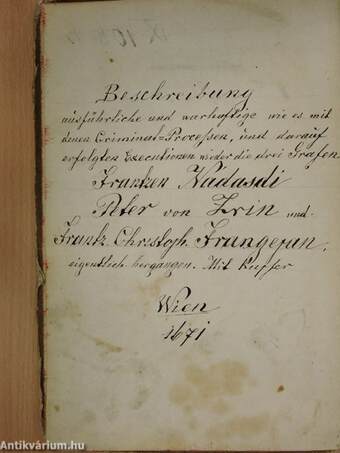 Beschreibung
ausführliche und warhaftige wie es mit
denen Criminal-Processen, und darauf
erfolgten Executionen wieder die drei Grafen
Frantzen Nadasdi
Peter von Zrin und
Frantz Christoph Frangepan,
eigentlich hergangen. Mit Kupfer
Wien
1671
Antikvárium.hu